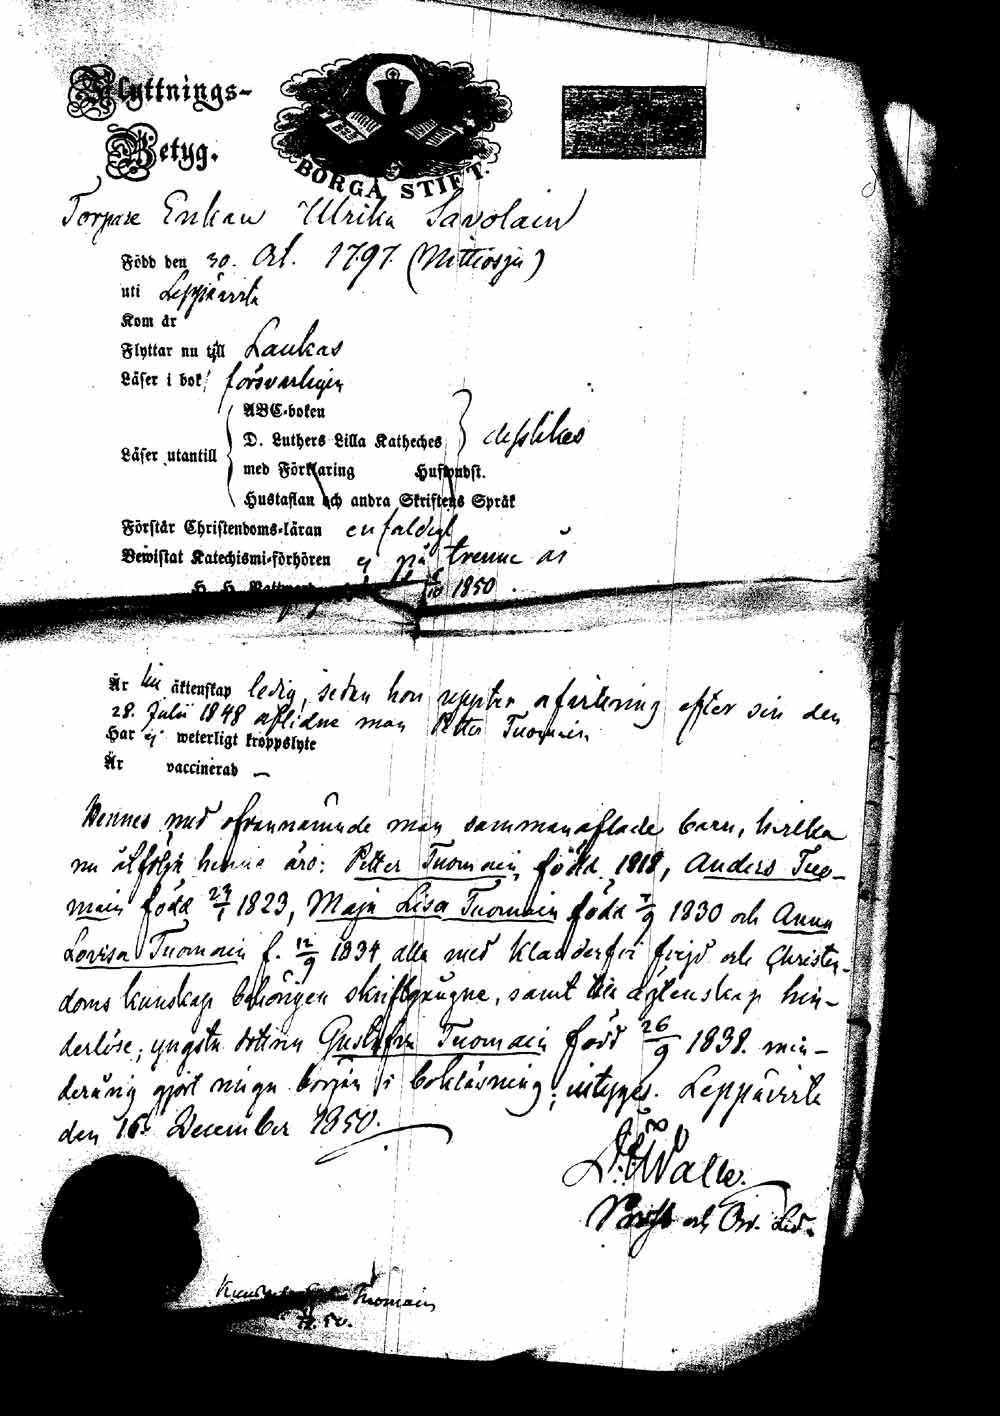 Flyttnings-
Betyg.
1828
BORGÅ STIFT.
Torpare Enkan Ulrika Savolain
Född den 30. Oct. 1797. (Nittiosju)
uti Leppävirta
Kom år
Flyttar nu till Laukas
Läser i bok försvarligen
ABC-boken
D. Luthers Lilla Katheches
Läser utantill
med Förklaring
Hustaflan och andra Skriftens Språk
desslikes
Förstår Christendoms-läran enfaldigt
Bewistat Katechismi-förhören ej på trenne år
H. H. 1850.
Är till äktenskap ledig, sedan hon uppter afvittring efter sin den
28. Julii 1848 aflidne man Petter Tuomain
Har ej weterligt kroppslyte
Är vaccinerad –
Hennes med ofvannämnde man sammanaflade barn, hvilka
nu åtfölja henne äro: Petter Tuomain, född 1818, Anders Tuo-
main född 1823, Maja Lisa Tuomain född 1830 och Anna
Lovisa Tuomain f. 12/9 1834 alla med klanderfri frejd och Christen-
doms kunskap behörigen skriftgångne, samt till äktenskap hin-
derlöse; yngsta dottren Gustafva Tuomain född 26/9 1838. min-
derårig gjort början i bokläsning; intygas. Leppävirta
den 16. December 1850.
Walle.
Prost och
Tuomain